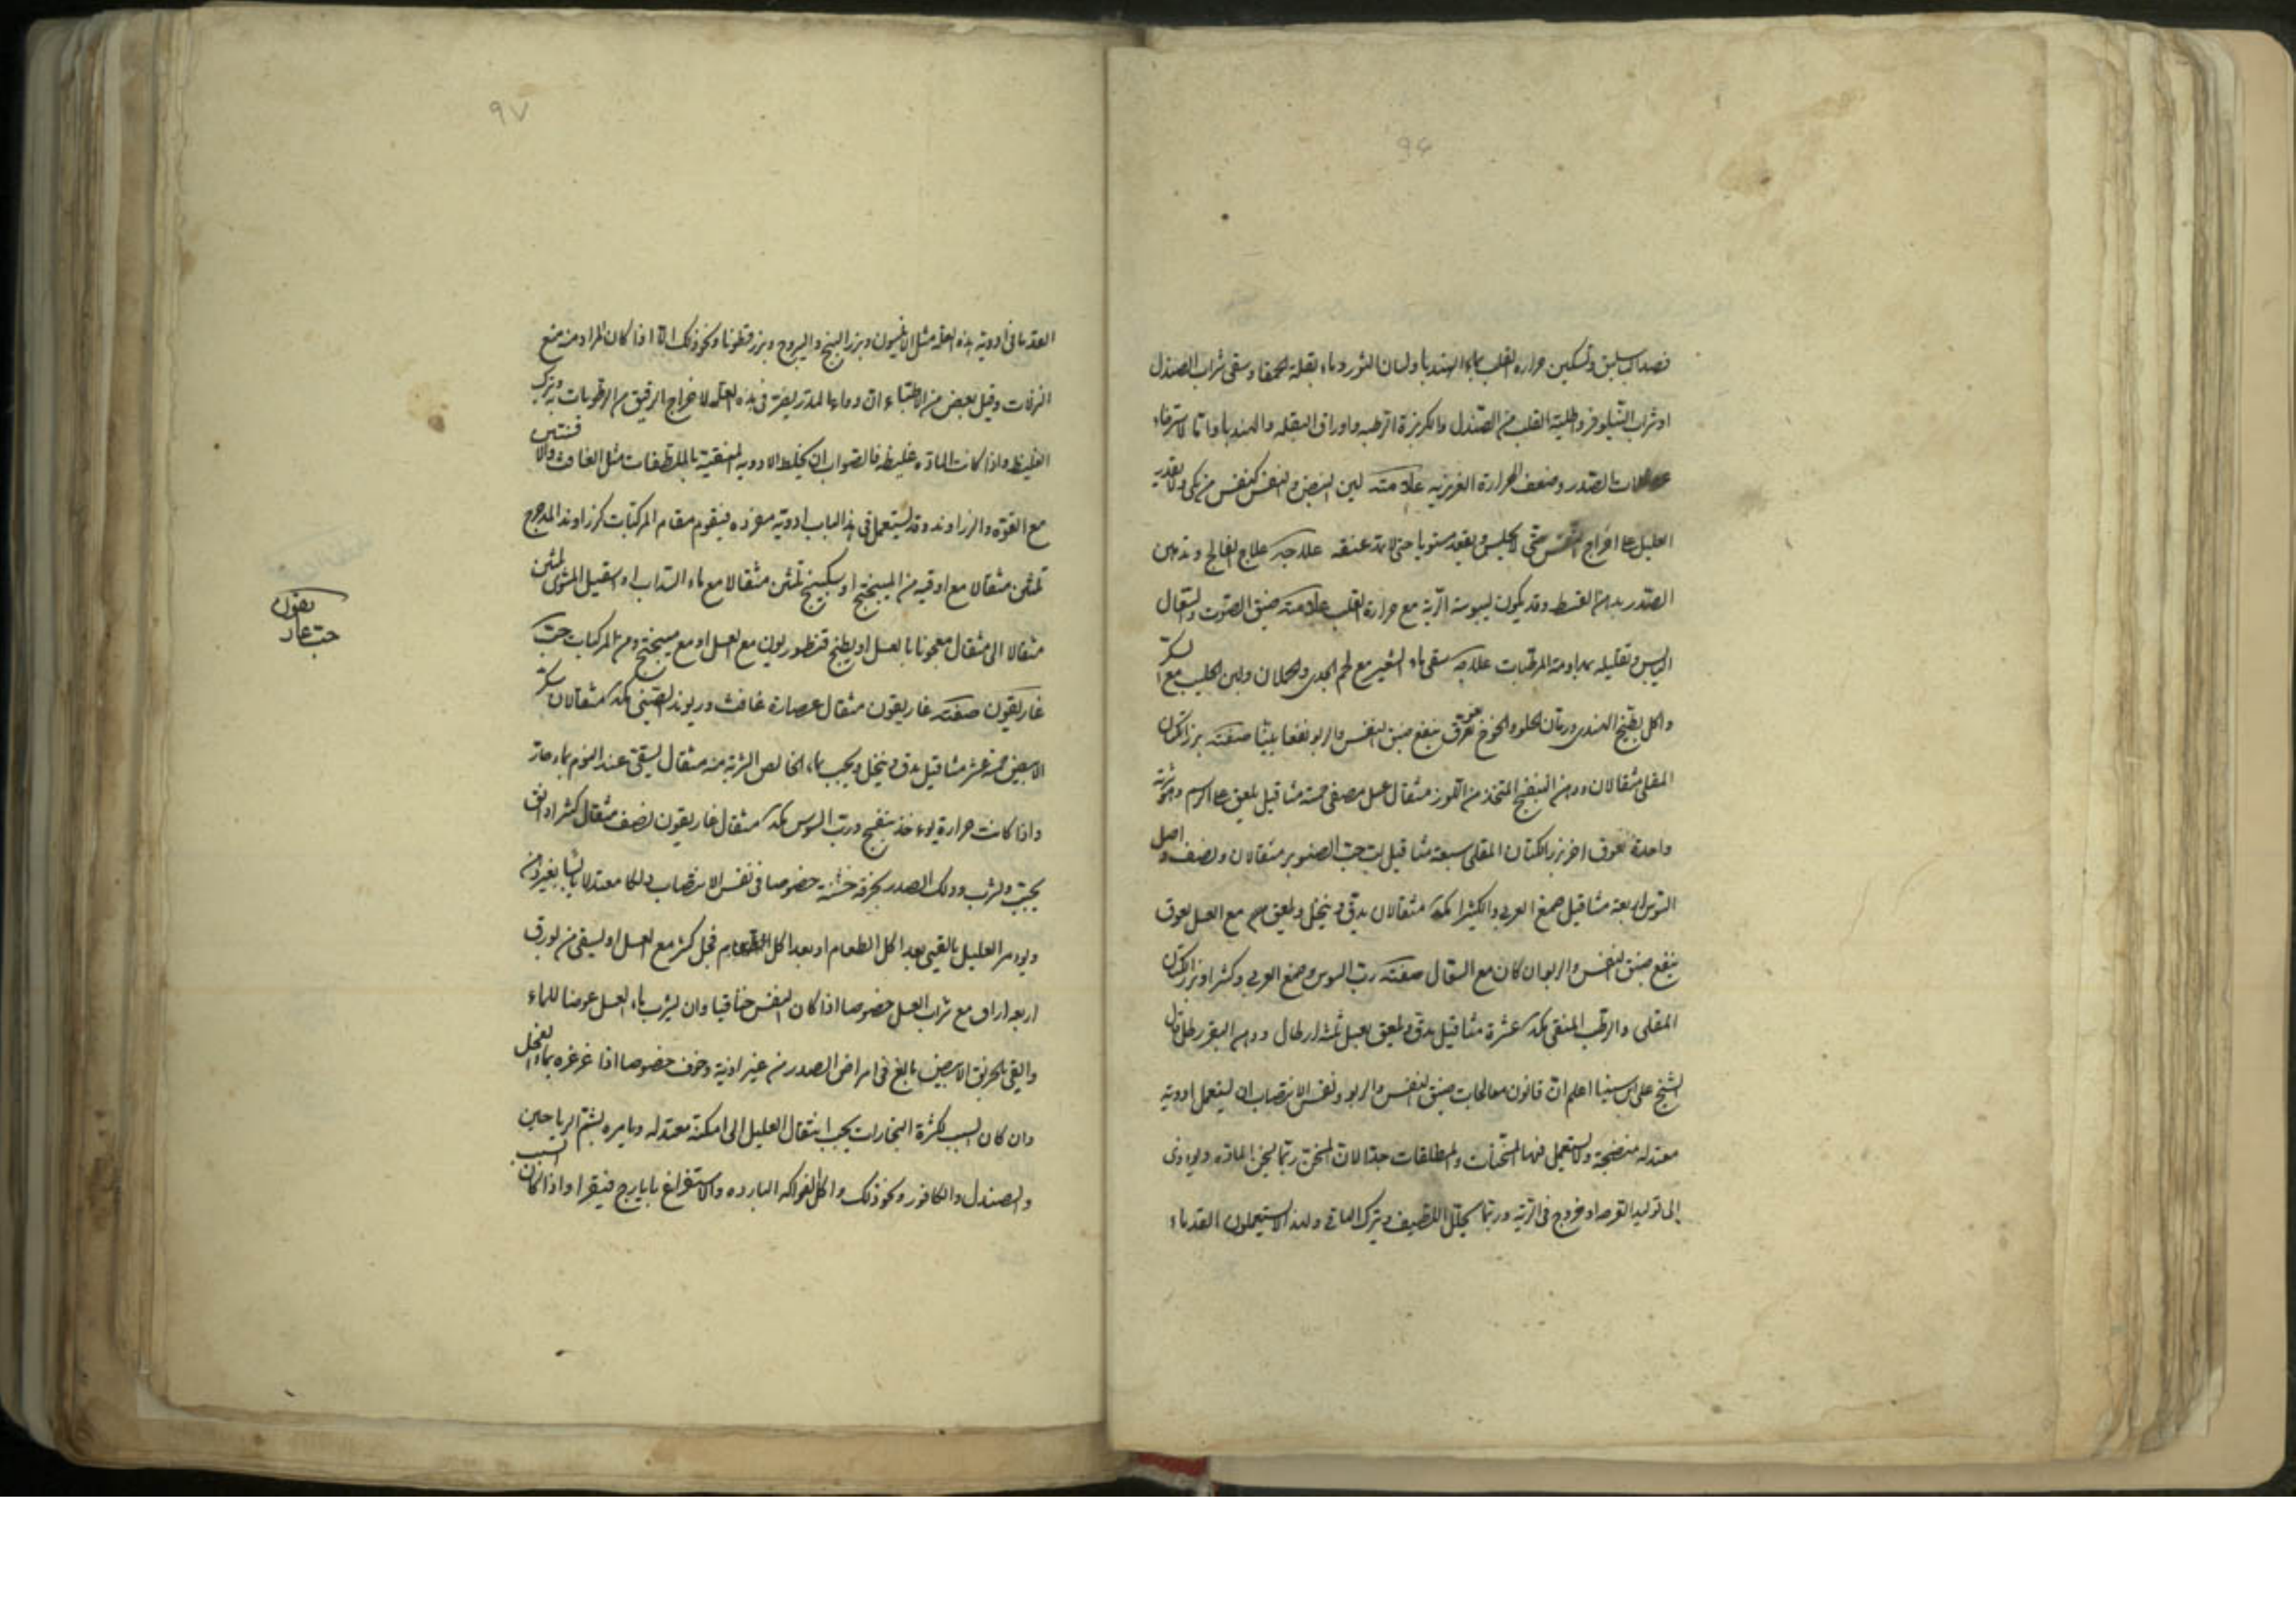 ٩۶
فصد الباسليق وتسكين حرارة القلب بماء الهندبا ولسان الثور وماء بقلة الحمقا وسقى شراب الصندل
او شراب النيلوفر واطلية القلب من الصندل والكزبزة الرطبه واوراق البقله والهندبا واما لاسترخاء
عضلات الصدر وضعف الحرارة الغريزيه علامته لين النبض والنفس كنفس من يبكى ولا يقدر
العليل على اخراج النفس حتى لا يجلس ويقعد مستويا حتى لا يمد عنقه علاجه علاج الفالج وتدهن
الصدر بدهن القسط وقد يكون ليبوسة الرية مع حرارة القلب علامته ضيق الصوت والسعال
اليابس وتقليله بمداومة المرطبات علاجه سقى ماء الشعير مع لحم الجدى والحملان ولبن الحليب مع السكر
واكل بطيخ الهندى ورمان الحلو والخوخ لعوق ينفع ضيق النفس والربو نفعا بينا صفته بزر الكتان
المقلى مثقالان ودهن البنفسج المتخذ من اللوز مثقال عسل مصفى خمسة مثاقيل يلعق على الرسم
واحدة لعوق اخر بزر الكتان المقلى سبعة مثاقيل لب حب الصنوبر مثقالان ونصف واصل
السوس اربعة مثاقيل صمغ العربى والكثيرا مكد مثقالان يدق وينخل ويلعق مع العسل لعوق
ينفع ضيق النفس والربو ان كان مع السعال صفته رب السوس وصمغ العربى وكثيرا وبزر الكتان
المقلى والرطب المنقى مكد عشرة مثاقيل يدق ويلعق بعسل ثلثة ارطال ودهن البقر رطل قال
الشيخ على ابن سينا اعلم ان قانون معالجات ضيق النفس والربو ونفس الانتصاب ان يستعمل ادوية
معتدله منضجة ولا يستعمل فيها المسخنات والمطلقات جدا لان المسخن ربما يسخن المادة ويؤدى
الى توليد القرحه او خروج فى الرية وربما يحلل اللطيف ويترك الباقى ولهذا لا يستعملون القدماء
٩٧
القدما فى ادوية هذه العلة مثل الافيون وبزر البنج واليبروح وبزر قطونا ونحو ذلك الا اذا كان المراد منه منع
النزلات وقيل بعض من الاطباء ان دواء المدر يضر فى هذه العلة لاخراج الرقيق من الرطوبات به وترك
الغليظ واذا كانت المادة غليظه فالصواب ان يخلط الادويه المنقية بالملطفات مثل الغافث والافسنتين
مع القوة والزراوند وقد يستعمل فى هذا الباب ادوية مفرده فيقوم مقام المركبات كزراوند المدحرج
ثلثى مثقال مع اوقيه من الميبختج او سكبينج ثلثى مثقالا مع ماء السداب او اسقيل المشوى ثلثى
مثقالا الى مثقال معجونا بالعسل او يطبخ قنطوريون مع العسل او مع ميبختج ومن المركبات حب
غاريقون صفته غاريقون مثقال عصارة غافث وريوند الصينى مكد مثقالان سكر
الابيض خمسة عشر مثاقيل يدق وينخل ويحبب بماء الخالص الشربة منه مثقال يسقى عند النوم بماء حار
واذا كانت حرارة يوءخذ بنفسج ورب السوس مكد مثقال غاريقون نصف مثقال كثيرا دانق
يحبب ويشرب ودلك الصدر بخرقة خشنة خصوصا فى نفس الانتصاب دلكا معتدلا يابسا بغير دهن
ويومر العليل بالقيى بعد اكل الطعام او بعد اكل فجل كثير مع العسل او يسقى من بورق
اربعه اراق مع شراب العسل خصوصا اذا كان النفس خناقيا وان يشرب ماء العسل عوضا للماء
والقى بالخربق الابيض بالغ فى امراض الصدر من غير اذية وخوف خصوصا اذا غرغره بماء الفجل
وان كان السبب كثرة البخارات يجب انتقال العليل الى امكنة معتدله ويامره بشم الرياحين
والصندل والكافور ونحو ذلك واكل الفواكه البارده والاستفراغ بايارج فيقرا واذا كان السبب